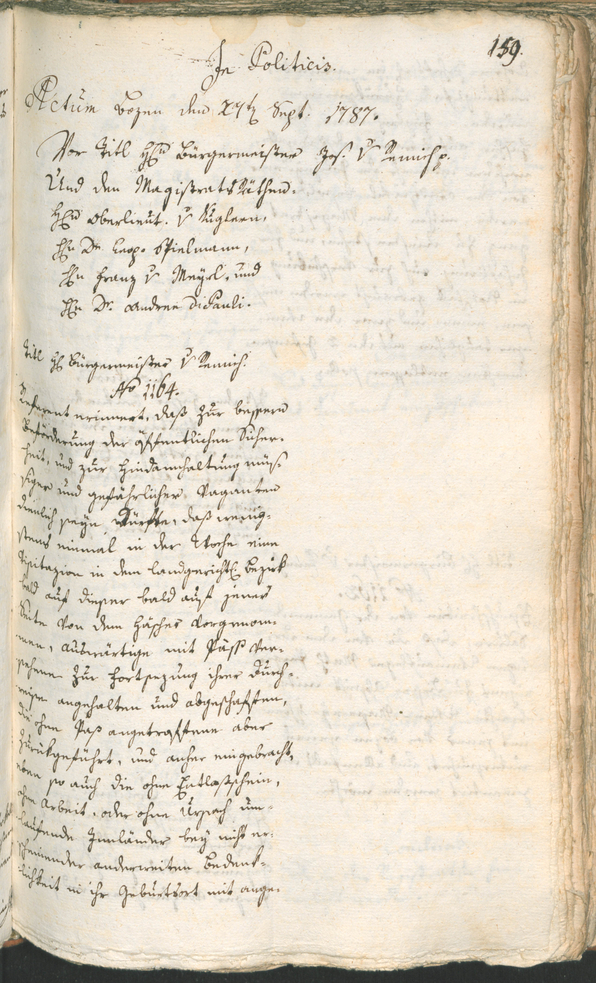 159.
In Politicis.
Actum Bozen den 27t Sept. 1787.
Vor Titl Hℓn Bürgermeister Jos. v Remich p.
Und den Magistrats Räthen.
Hℓn Oberlieut. v Kuglern,
Hℓn Dr Leop. Spielmann,
Hℓn Franz v Mayrl, und
Hℓn Dr. Andree Dipauli.
Titl Hℓ Bürgermeister v Remich.
No 1164.
Referent erinnert, daß zur bessern
Beförderung der öffentlichen Sicher-
heit, und zur Hindannhaltung müs-
siger und gefährlicher Vaganten
dienlich seyn dürfte, daß wenig-
stens einmal in der Woche eine
Visitazion in dem landgerichtℓ Bezirk
bald auf dieser bald auf jener
Seite von dem Häscher vorgenom-
men, auswärtige mit Pässe ver-
sehene zur Fortsezung ihrer Durch-
reise angehalten und abgeschaffen,
die ohne Paß angetroffene aber
zurükgeführt, und anher eingebracht,
eben so auch die ohne Entlaßschein,
ohne Arbeit, oder ohne Ursach um-
laufende Innländer bey nicht er-
scheinender anderweiten Bedenk-
lichkeit in ihr Geburtsort mit ange-